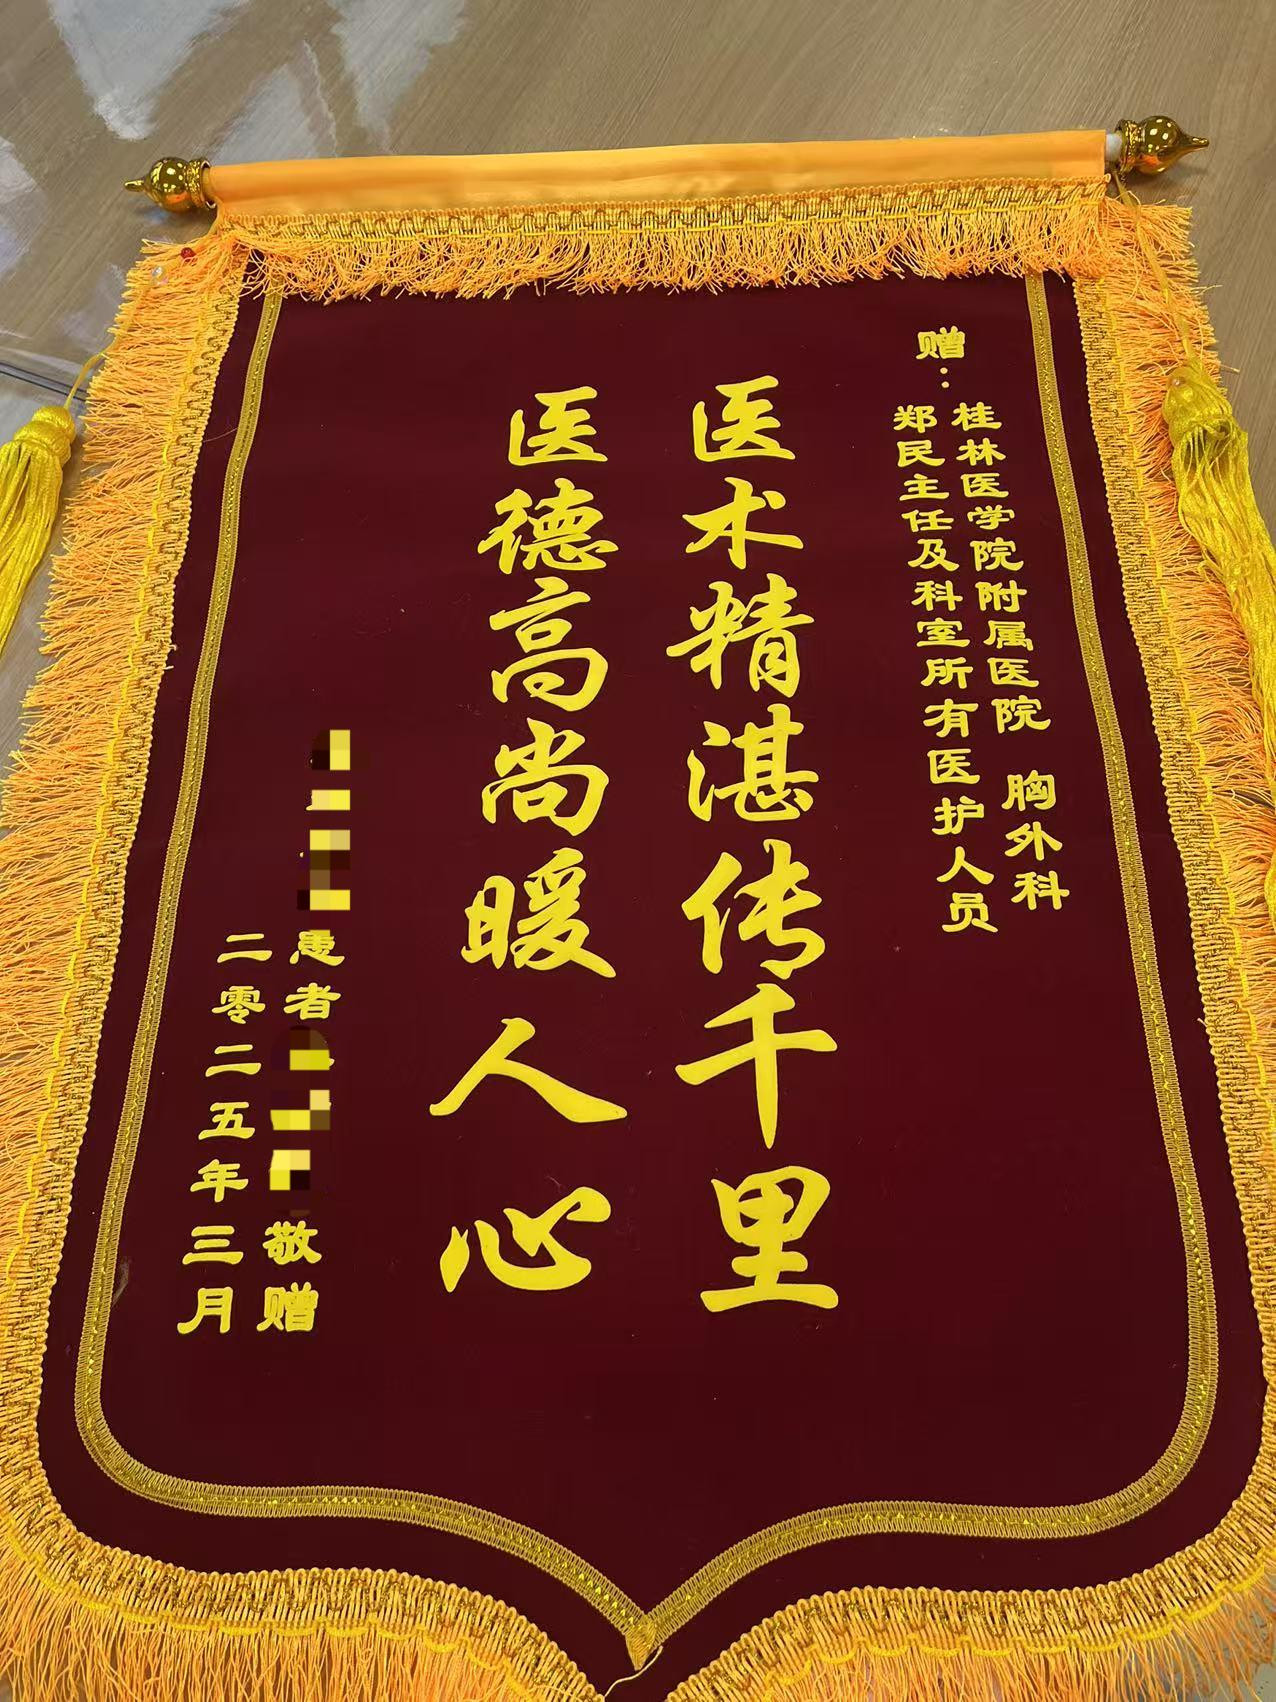 赠：
桂林医学院附属医院 胸外科
郑民主任及科室所有医护人员
医术精湛传千里
医德高尚暖人心
患者
敬赠
二零二五年三月